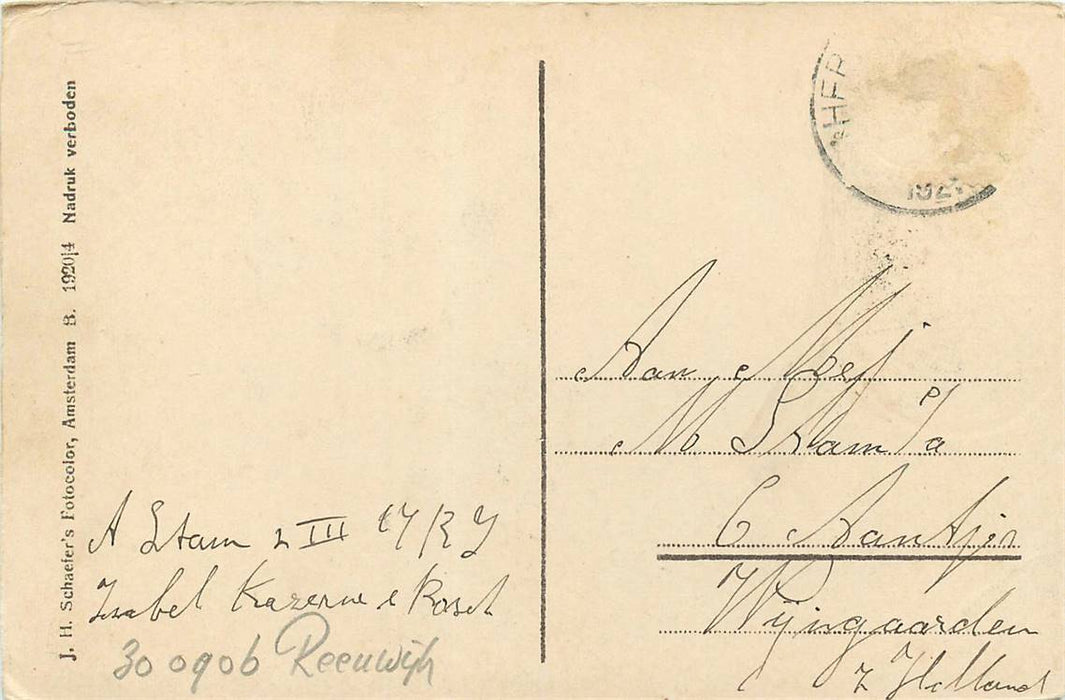 J. H. Schaefer's Fotocolor, Amsterdam B. 1920|4 Nadruk verboden
192
Aan Mej
M Stam
C
Wijngaarden
Z Holland
A Stam 2 III
Isabel Kazerne
300906 Reeuwijk